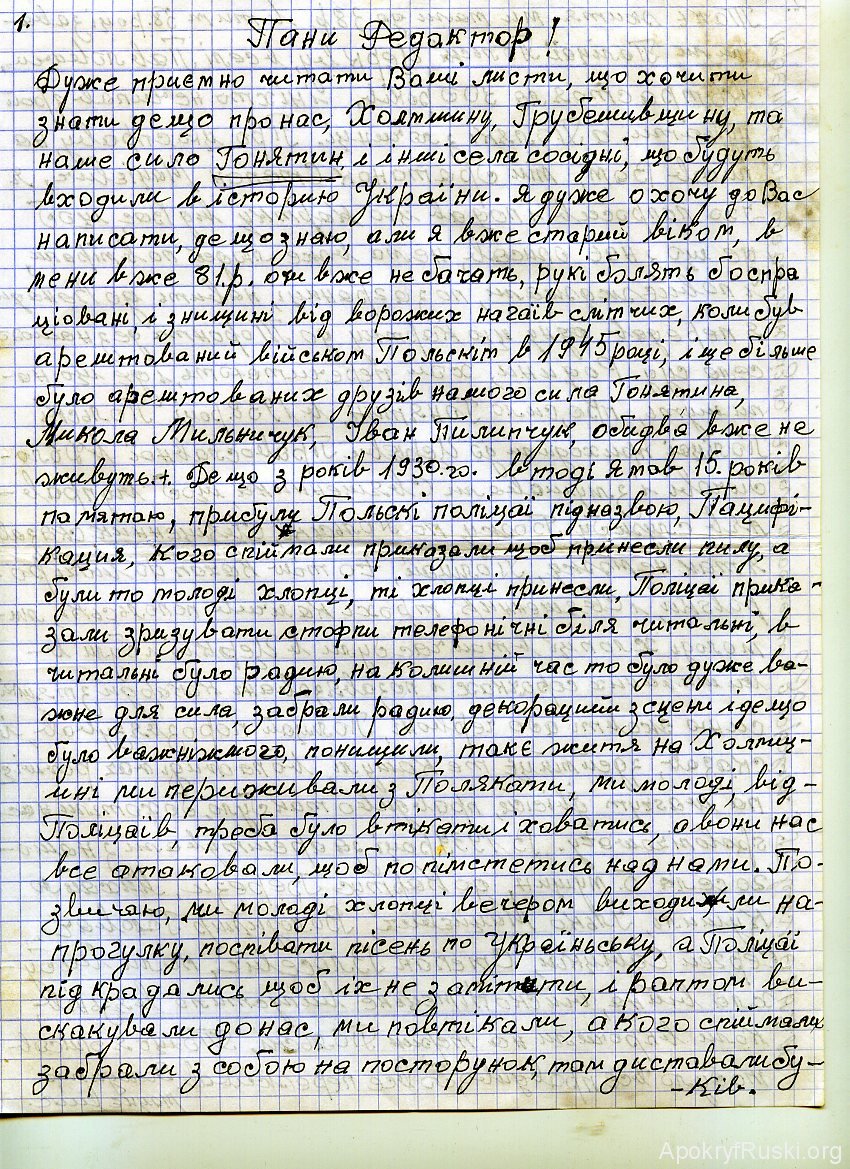 1.
Пани Редактор!
Дуже приємно читати Ваші листи, що хочити
знати дещо про нас, Холмщину, Грубешивщину, та
наше сило Гонятин і інші села сосідні, що будуть
входили в історию України. Я дуже охочу до Вас
написати, дещо знаю, али я вже старий віком, в
мени вже 81.р. очи вже не бачать, рукі болять бо спра
ціовані, і знищині від ворожих нагаїв слітчих, коли був
арештований військом Польскім в 1945 році, і ще більше
було арештованих друзів нашого сила Гонятина,
Микола Мильничук, Іван Пилипчук, обидва вже не
живуть.+. Дещо з років 1930.го. в тоді я мав 15. років
памятаю, прибули Польскі поліцаї під назвою, Пацифі-
кация, кого спіймали приказали щоб принесли пилу, а
були то молоді хлопці, ті хлопці принесли, Поліцаї прика-
зали зризувати стофпи телефонічні біля читальні, в
читальні було радию, на колишній час то було дуже ва-
жне для сила, забрали радию, декорациии з сцени і дещо
було важніжмого, понищили, такє житя на Холмщ-
ині ми периживали з Поляками, ми молоді, від-
Поліцаїв, треба було втікати і ховатись, а вони нас
все атаковали, щоб попімстетись над нами. По-
звичаю, ми молоді хлопці вечером виходили на-
прогулку, поспівати пісень по Україньську, а Поліцаї
підкрадались щоб іх не замітити, і раптом ви-
скакували до нас, ми повтікали, а кого спіймали
забрали з собою на посторунок, там диставали бу-
-ків.
ApokryfRuski.org